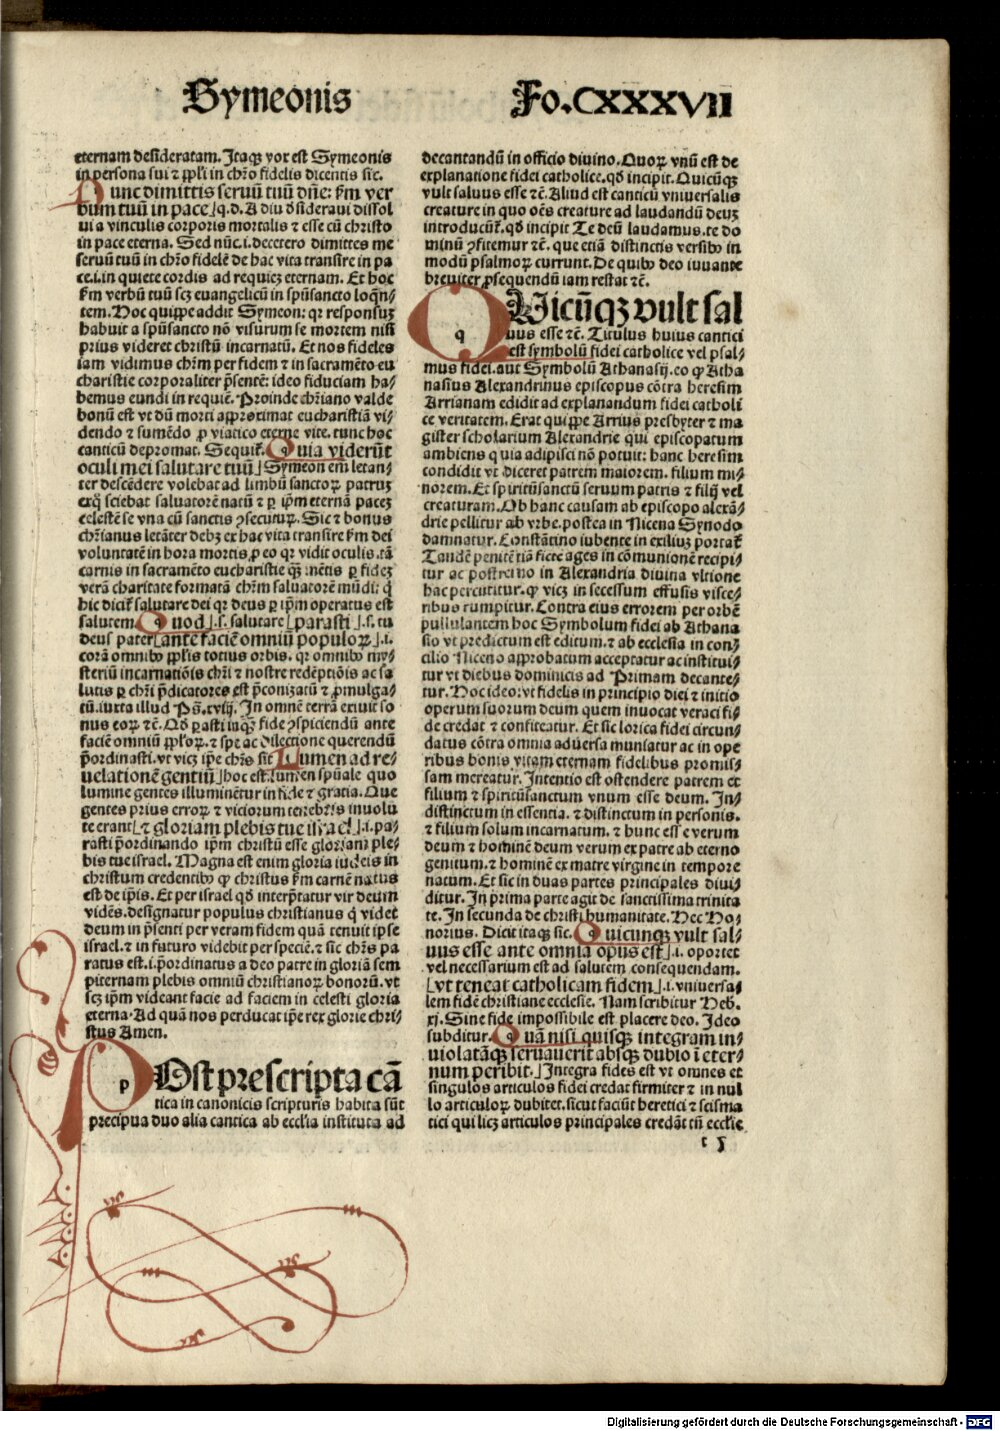 Symeonis
Fo.CXXXVII
eternam desideratam. Itaqʒ vox est Symeonis
in persona sui ⁊ ppl̄i in chr̄o fidelis dicentis sic.
Nunc dimittis seruū tuū dn̄e: km̄ ver
bum tuū in pace⌋q.d. A diu dsideraui dissol
ui a vinculis corporis mortalis ⁊ esse cū christo
in pace eterna. Sed nūc.i.decetero dimittes me
seruū tuū in chr̄o fidelē de hac vita transire in pa
ce.i.in quiete cordis ad requiez eternam. Et hoc
km̄ verbū tuū scʒ euangelicū in spūsancto loqn̄⸗
tem. Hoc quippe addit Symeon: qr responsuʒ
habuit a spūsancto nō visurum se mortem nisi
prius videret christū incarnatū. Et nos fideles
iam vidimus chr̄m per fidem ⁊ in sacramēto eu
charistie corporaliter p̄sentē: ideo fiduciam ha⸗
bemus eundi in requiē. Proinde chr̄iano valde
bonū est vt dū morti approximat eucharistiā vi⸗
dendo ⁊ sumēdo ꝓ viatico eterne vite. tunc hoc
canticū depromat. Sequit᷑. Quia viderūt
oculi mei salutare tuū⌋Symeon em̄ letan⸗
ter descēdere volebat ad limbū sanctoꝝ patruʒ
exq̄ sciebat saluatorē natū ⁊ ꝑ ip̄m eternā paceʒ
celestē se vna cū sanctis ꝯsecuturꝝ. Sic ⁊ bonus
chr̄ianus letāter debʒ ex hac vita transire km̄ dei
voluntatē in hora mortis, ꝓ eo qr vidit oculis.tā
carnis in sacramēto eucharistie qʒ mētis ꝑ fideʒ
verā charitate formatā chr̄m saluatorē mūdi: q̄
hic dicit᷑ salutare dei qr deus ꝑ ip̄m operatus est
salutem. Quod⌋.s. salutare⌊parasti⌋.s. tu
deus pater⌊ante faciē omniū populoꝝ⌋.i.
corā omnibꝰ ppl̄is totius orbis. qr omnibꝰ my⸗
steriū incarnatiōis chr̄i ⁊ nostre redēptiōis ac sa
lutis ꝑ chr̄i p̄dicatores est p̄conizatū ⁊ ꝓmulga⸗
tū.iuxta illud Ps̄.xviij. In omnē terrā exiuit so
nus eoꝝ ⁊c̄. Qd̄ ꝑasti inqʒ fide ꝯspiciendū ante
faciē omniū ppl̄oꝝ.⁊ spe ac dilectione querendū
p̄ordinasti.vt vicʒ ip̄e chr̄s sit Lumen ad re⸗
uelationē gentiū⌋hoc est.lumen spūale quo
lumine gentes illuminētur in fide ⁊ gratia. Que
gentes prius erroꝝ ⁊ viciorum tenebris inuolu
te erant⌊⁊ gloriam plebis tue israel⌋.i.pa⸗
rasti p̄ordinando ip̄m christū esse gloriam ple⸗
bis tue israel. Magna est enim gloria iudeis in
christum credentibꝰ ꝙ christus km̄ carnē natus
est de ip̄is. Et per israel qd̄ interp̄tatur vir deum
vidēs.designatur populus christianus q̄ videt
deum in p̄senti per veram fidem quā tenuit ip̄se
israel.⁊ in futuro videbit per speciē.⁊ sic chr̄s pa
ratus est.i.p̄ordinatus a deo patre in gloriā sem
piternam plebis omniū christianoꝝ bonorū.vt
scʒ ip̄m videant facie ad faciem in celesti gloria
eterna. Ad quā nos perducat ip̄e rex glorie chri⸗
stus Amen.
p POst prescripta cā
tica in canonicis scripturis habita sūt
precipua duo alia cantica ab eccl̄ia instituta ad
decantandū in officio diuino. Quoꝝ vnū est de
explanatione fidei catholice.qd̄ incipit. Quicūqʒ
vult saluus esse ⁊c̄. Aliud est canticū vniuersalis
creature in quo oēs creature ad laudandū deuʒ
introducūt᷑. qd̄ incipit Te deū laudamus.te do
minū ꝯfitemur ⁊c̄. que etiā distinctis versibꝰ in
modū psalmoꝝ currunt. De quibꝰ deo iuuante
breuiter ꝓsequendū iam restat ⁊c̄.
q QUicūqʒ vult sal
uus esse ⁊c̄. Titulus huius cantici
est symbolū fidei catholice vel psal⸗
mus fidei.aut Symbolū Athanasij.eo ꝙ Atha
nasius Alexandrinus episcopus cōtra heresim
Arrianam edidit ad explanandum fidei catholi
ce veritatem. Erat quippe Arrius presbyter ⁊ ma
gister scholarium Alexandrie qui episcopatum
ambiens quia adipisci nō potuit: hanc heresim
condidit vt diceret patrem maiorem. filium mi⸗
norem. Et spiritūsanctū seruum patris ⁊ filij vel
creaturam. Ob hanc causam ab episcopo alexā⸗
drie pellitur ab vrbe.postea in Nicena Synodo
damnatur. Constātino iubente in exiliuʒ portat᷑
Tandē penitētiā ficte agēs in cōmunionē recipi⸗
tur ac postremo in Alexandria diuina vltione
hac percutitur.ꝙ vicʒ in secessum effusis visce⸗
ribus rumpitur. Contra eius errorem per orbē
pullulantem hoc Symbolum fidei ab Athana
sio vt predictum est editum.⁊ ab ecclesia in con⸗
cilio Niceno approbatum acceptatur ac institui⸗
tur vt diebus dominicis ad Primam decante⸗
tur. Hoc ideo: vt fidelis in principio diei ⁊ initio
operum suorum deum quem inuocat veraci fi⸗
de credat ⁊ confiteatur. Et sic lorica fidei circun⸗
datus cōtra omnia aduersa muniatur ac in ope
ribus bonis vitam eternam fidelibus promis⸗
sam mereatur. Intentio est ostendere patrem et
filium ⁊ spiritūsanctum vnum esse deum. In⸗
distinctum in essentia. ⁊ distinctum in personis.
⁊ filium solum incarnatum. ⁊ hunc esse verum
deum ⁊ hominē deum verum ex patre ab eterno
genitum.⁊ hominē ex matre virgine in tempore
natum. Et sic in duas partes principales diui⸗
ditur. In prima parte agit de sanctissima trinita
te. In secunda de christi humanitate. Hec Ho⸗
norius. Dicit itaqʒ sic. Quicunqʒ vult sal⸗
uus esse ante omnia opus est⌋.i. oportet
vel necessarium est ad salutem consequendam.
⌊vt teneat catholicam fidem⌋.i.vniuersa⸗
lem fidē christiane ecclesie. Nam scribitur Heb.
xj. Sine fide impossibile est placere deo. Ideo
subditur. Quā nisi quisqʒ integram in⸗
violatāqʒ seruauerit absqʒ dubio ī eter⸗
num peribit.⌋Integra fides est vt omnes et
singulos articulos fidei credat firmiter ⁊ in nul
lo articuloꝝ dubitet.sicut faciūt heretici ⁊ scisma
tici qui licʒ articulos principales credāt tn̄ eccl̄ie
Digitalisierung gefördert durch die Deutsche Forschungsgemeinschaft - DFG